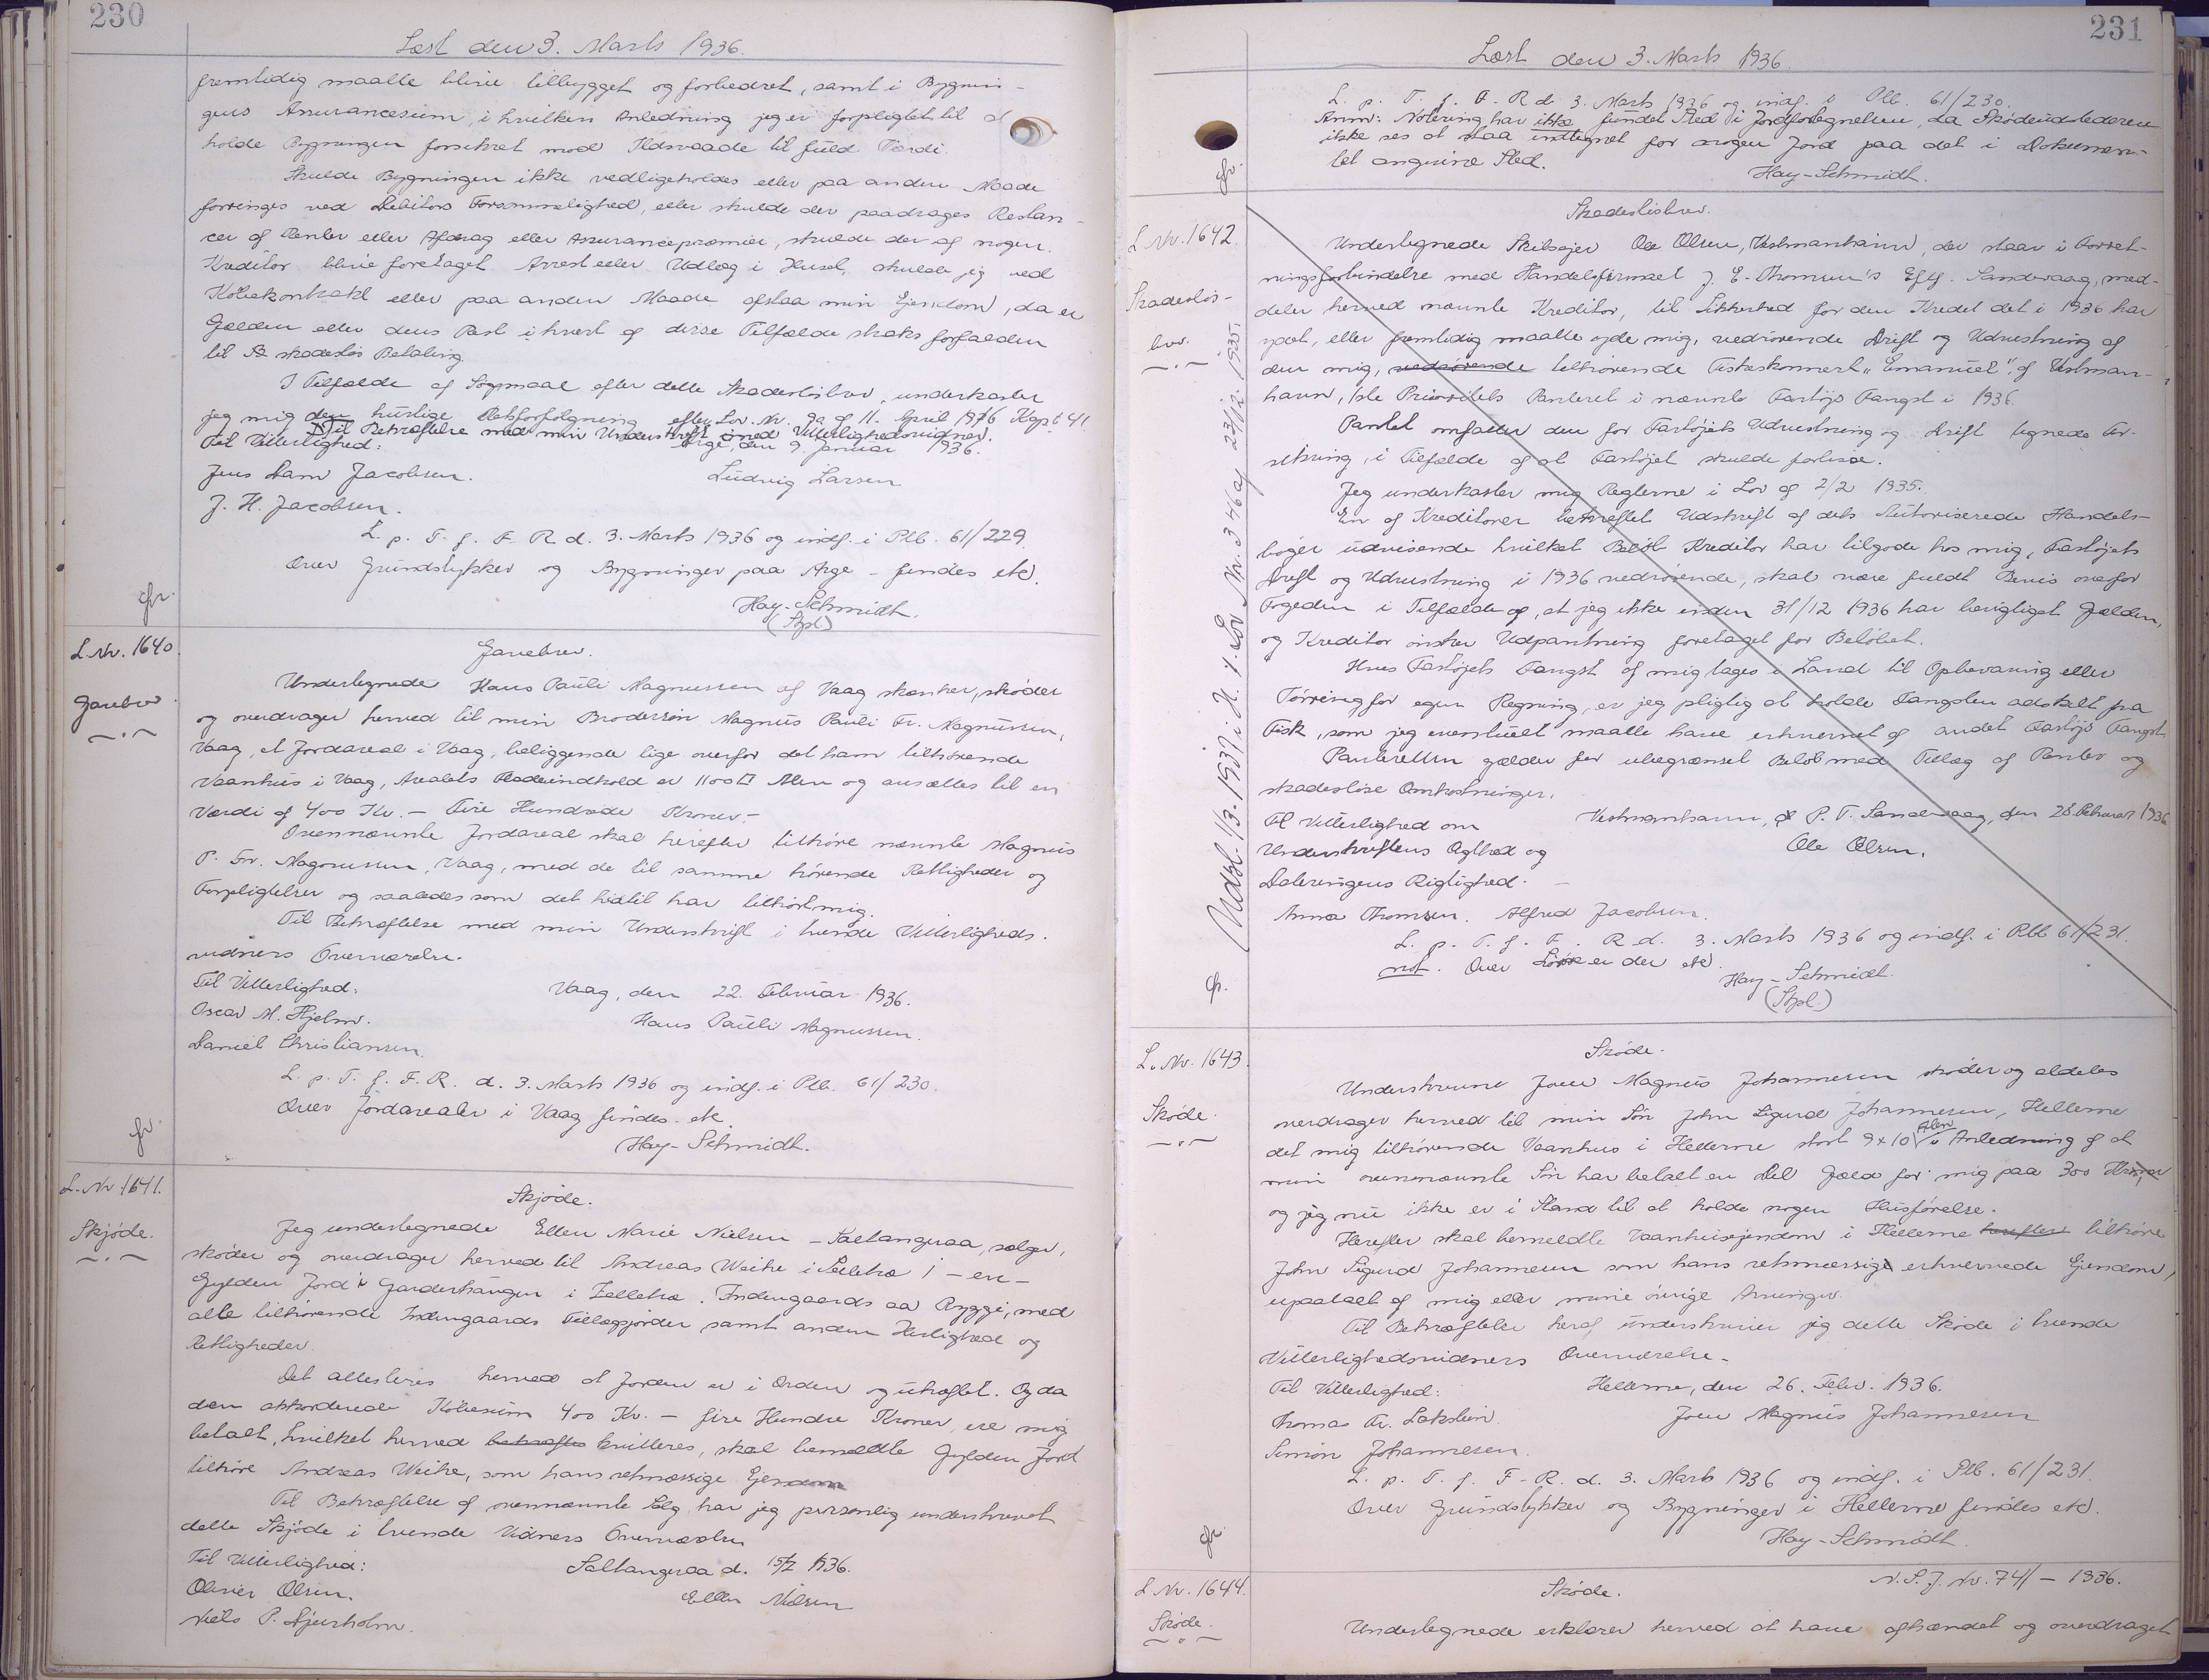 230
Læst den 3. Marts 1936.
fremtidig maatte blive tilbygget og forbedret, samt i Bygnin-
gens Assurancesum, i hvilken Anledning jeg er forpligtet til at
holde Bygningen forsikret mod Ildsvaade til fuld Værdi.
Skulde Bygningen ikke vedligeholdes eller paa anden Maade
forringes ved Debitors Forsømmelighed, eller skulde der paadrages Restan-
cer af Renter eller Afdrag eller Assurancepræmie, skulde der af nogen
Kreditor blive foretaget Arrest eller Udlæg i Huset, skulde jeg ved
Købekontrakt eller paa anden Maade afstaa min Ejendom, da er
Gælden eller dens Rest i hvert af disse Tilfælde straks forfalden
til skadesløs Betaling.
I Tilfælde af Søgsmaal efter dette Skadesløsbrev, underkaster
jeg mig den hurtige Retsforfølgning efter Lov Nr. 90 af 11. April 1916 Kap. 41
Til Bekræftelse med min Underskrift med Vitterlighedsvidner.
Til Vitterlighed: Arge, den 9. Januar 1936.
Jens Dam Jacobsen. Ludvig Larsen
J. H. Jacobsen.
L. p. T. f. F. R. d. 3. Marts 1936 og indf. i Ptb. 61/229.
Over Grundstykker og Bygninger paa Arge - findes etc.
Hay-Schmidt.
(Spl)
fr.
L. Nr. 1640.
Gavebrev.
Gavebrev.
Undertegnede Hans Pauli Magnussen af Vaag skænker, skøder
og overdrager herved til min Brodersøn Magnus Pauli Fr. Magnussen,
Vaag, et Jordareal i Vaag, beliggende lige overfor det ham tilhørende
Vaanhus i Vaag, Arealets Fladeindhold er 1100 □ Alen og ansættes til en
Værdi af 400 Kr. - Fire Hundrede Kroner. -
Ovennævnte Jordareal skal herefter tilhøre nævnte Magnus
P. Fr. Magnussen, Vaag, med de til samme hørende Rettigheder og
Forpligtelser og saaledes som det hidtil har tilhørt mig.
Til Bekræftelse med min Underskrift i tvende Vitterligheds-
vidners Overværelse.
Til Vitterlighed: Vaag, den 22. Februar 1936.
Oscar M. Hjelm. Hans Pauli Magnussen.
Daniel Christiansen.
L. p. T. f. F. R. d. 3. Marts 1936 og indf. i Ptb. 61/230.
Over Jordarealer i Vaag findes etc.
Hay-Schmidt.
fr.
L. Nr. 1641.
Skjøde.
Skjøde.
Jeg undertegnede Ellen Marie Nielsen - Saltangeraa, sælger,
skøder og overdrager herved til Andreas Weihe i Selletræ 1 - en -
Gylden Jord i Garderhangen i Zelletræ. Indengaards aa Ryggi, med
alle tilhørende Indengaards Tillægsjorder samt anden Herlighed og
Rettigheder.
Det attesteres herved at Jorden er i Orden og uhæftet. Og da
den akkorderede Købesum 400 Kr. - fire Hundre Kroner, ere mig
betalt, hvilket herved bekræftes kvitteres, skal bemeldte Gylden Jord
tilhøre Andreas Weihe, som hans retmæssige Ejendom
Til Bekræftelse af ovennævnte Salg har jeg personlig underskrevet
dette Skjøde i tvende Vidners Overværelse
Til Vitterlighed: Saltangeraa d. 15/2 1936.
Oliver Olsen. Ellen Nielsen
Niels P. Djurholm.
231
Læst den 3. Marts 1936.
L. p. T. f. F. R. d. 3. Marts 1936 og indf. i Ptb. 61/230.
Anm: Notering har ikke fundet Sted i Jordfortegnelsen, da Skødeudstederen
ikke ses at staa indtegnet for nogen Jord paa det i Dokumen-
tet angivne Sted.
Hay-Schmidt.
fr.
L. Nr. 1642.
Skadesløs-
brev.
Skadesløsbrev.
Undertegnede Skibsejer Ole Olsen, Vestmanhavn, der staar i Forret-
ningsforbindelse med Handelsfirmaet J. E. Thomsen's Eftf. Sandevaag, med-
deler herved nævnte Kreditor, til Sikkerhed for den Kredit det i 1936 har
ydet, eller fremtidig maatte yde mig, vedrørende Drift og Udrustning af
den mig, vedrørende tilhørende Fiskeskonnert "Emanuel" af Vestman-
havn, 1ste Prioritets Panteret i nævnte Fartøjs Fangst i 1936.
Pantet omfatter den for Fartøjets Udrustning og Drift tegnede For-
sikring, i Tilfælde af at Fartøjet skulde forlise.
Jeg underkaster mig Reglerne i Lov af 2/2 1935.
En af Kreditorer bekræftet Udskrift af dets Autoriserede Handels-
bøger udvisende hvilket Beløb Kreditor har tilgode hos mig, Fartøjets
Drift og Udrustning i 1936 vedrørende, skal være fuldt Bevis overfor
Fogeden i Tilfælde af, at jeg ikke inden 31/12 1936 har berigtiget Gælden,
og Kreditor ønsker Udpantning foretaget for Beløbet.
Hvis Fartøjets Fangst af mig tages i Land til Opbevaring eller
Tørring for egen Regning, er jeg pligtig at holde Fangsten adskilt fra
Fisk, som jeg eventuelt maatte have erhvervet af andet Fartøjs Fangst.
Panteretten gælder for ubegrænset Beløb med Tillæg af Renter og
skadesløse Omkostninger.
Til Vitterlighed om Vestmanhavn, P. T. Sandevaag, den 28. Februar 1936
Underskriftens Ægthed og Ole Olsen.
Dateringens Rigtighed. -
Anna Thomsen. Alfred Jacobsen.
L. p. T. f. F. R. d. 3. Marts 1936 og indf. i Ptb 61/231.
not. Over er der etc.
Hay-Schmidt.
(Spl.)
Udsl. 1/3-1937 i H. t. Lov Nr. 346 af 23/12 1935.
fr.
L. Nr. 1643.
Skøde.
Skøde.
Underskrevne Joen Magnus Johannesen skøder og aldeles
overdrager herved til min Søn John Sigurd Johannesen, Hellerne
det mig tilhørende Vaanhus i Hellerne stort 9 x 10 Alen i Anledning af at
min ovennævnte Søn har betalt en Del Gæld for mig paa 300 Kroner
og jeg nu ikke er i Stand til at holde nogen Husførelse.
Herefter skal bemeldte Vaanhusejendom i Hellerne herefter tilhøre
John Sigurd Johannesen som hans retmæssige erhvervede Ejendom,
upaatalt af mig eller mine øvrige Arvinger.
Til Bekræftelse heraf underskriver jeg dette Skøde i tvende
Vitterlighedsvidners Overværelse.
Til Vitterlighed: Hellerne, den 26. Febr. 1936.
Thomas Fr. Lakstein. Joen Magnus Johannesen
Simon Johannesen.
L. p. T. f. F. R. d. 3. Marts 1936 og indf. i Ptb. 61/231.
Over Grundstykker og Bygninger i Hellerne findes etc.
Hay-Schmidt.
fr.
L. Nr. 1644.
Skøde.
Skøde. N. S. J. Nr. 74 - 1936.
Undertegnede erklærer herved at have afhændet og overdraget